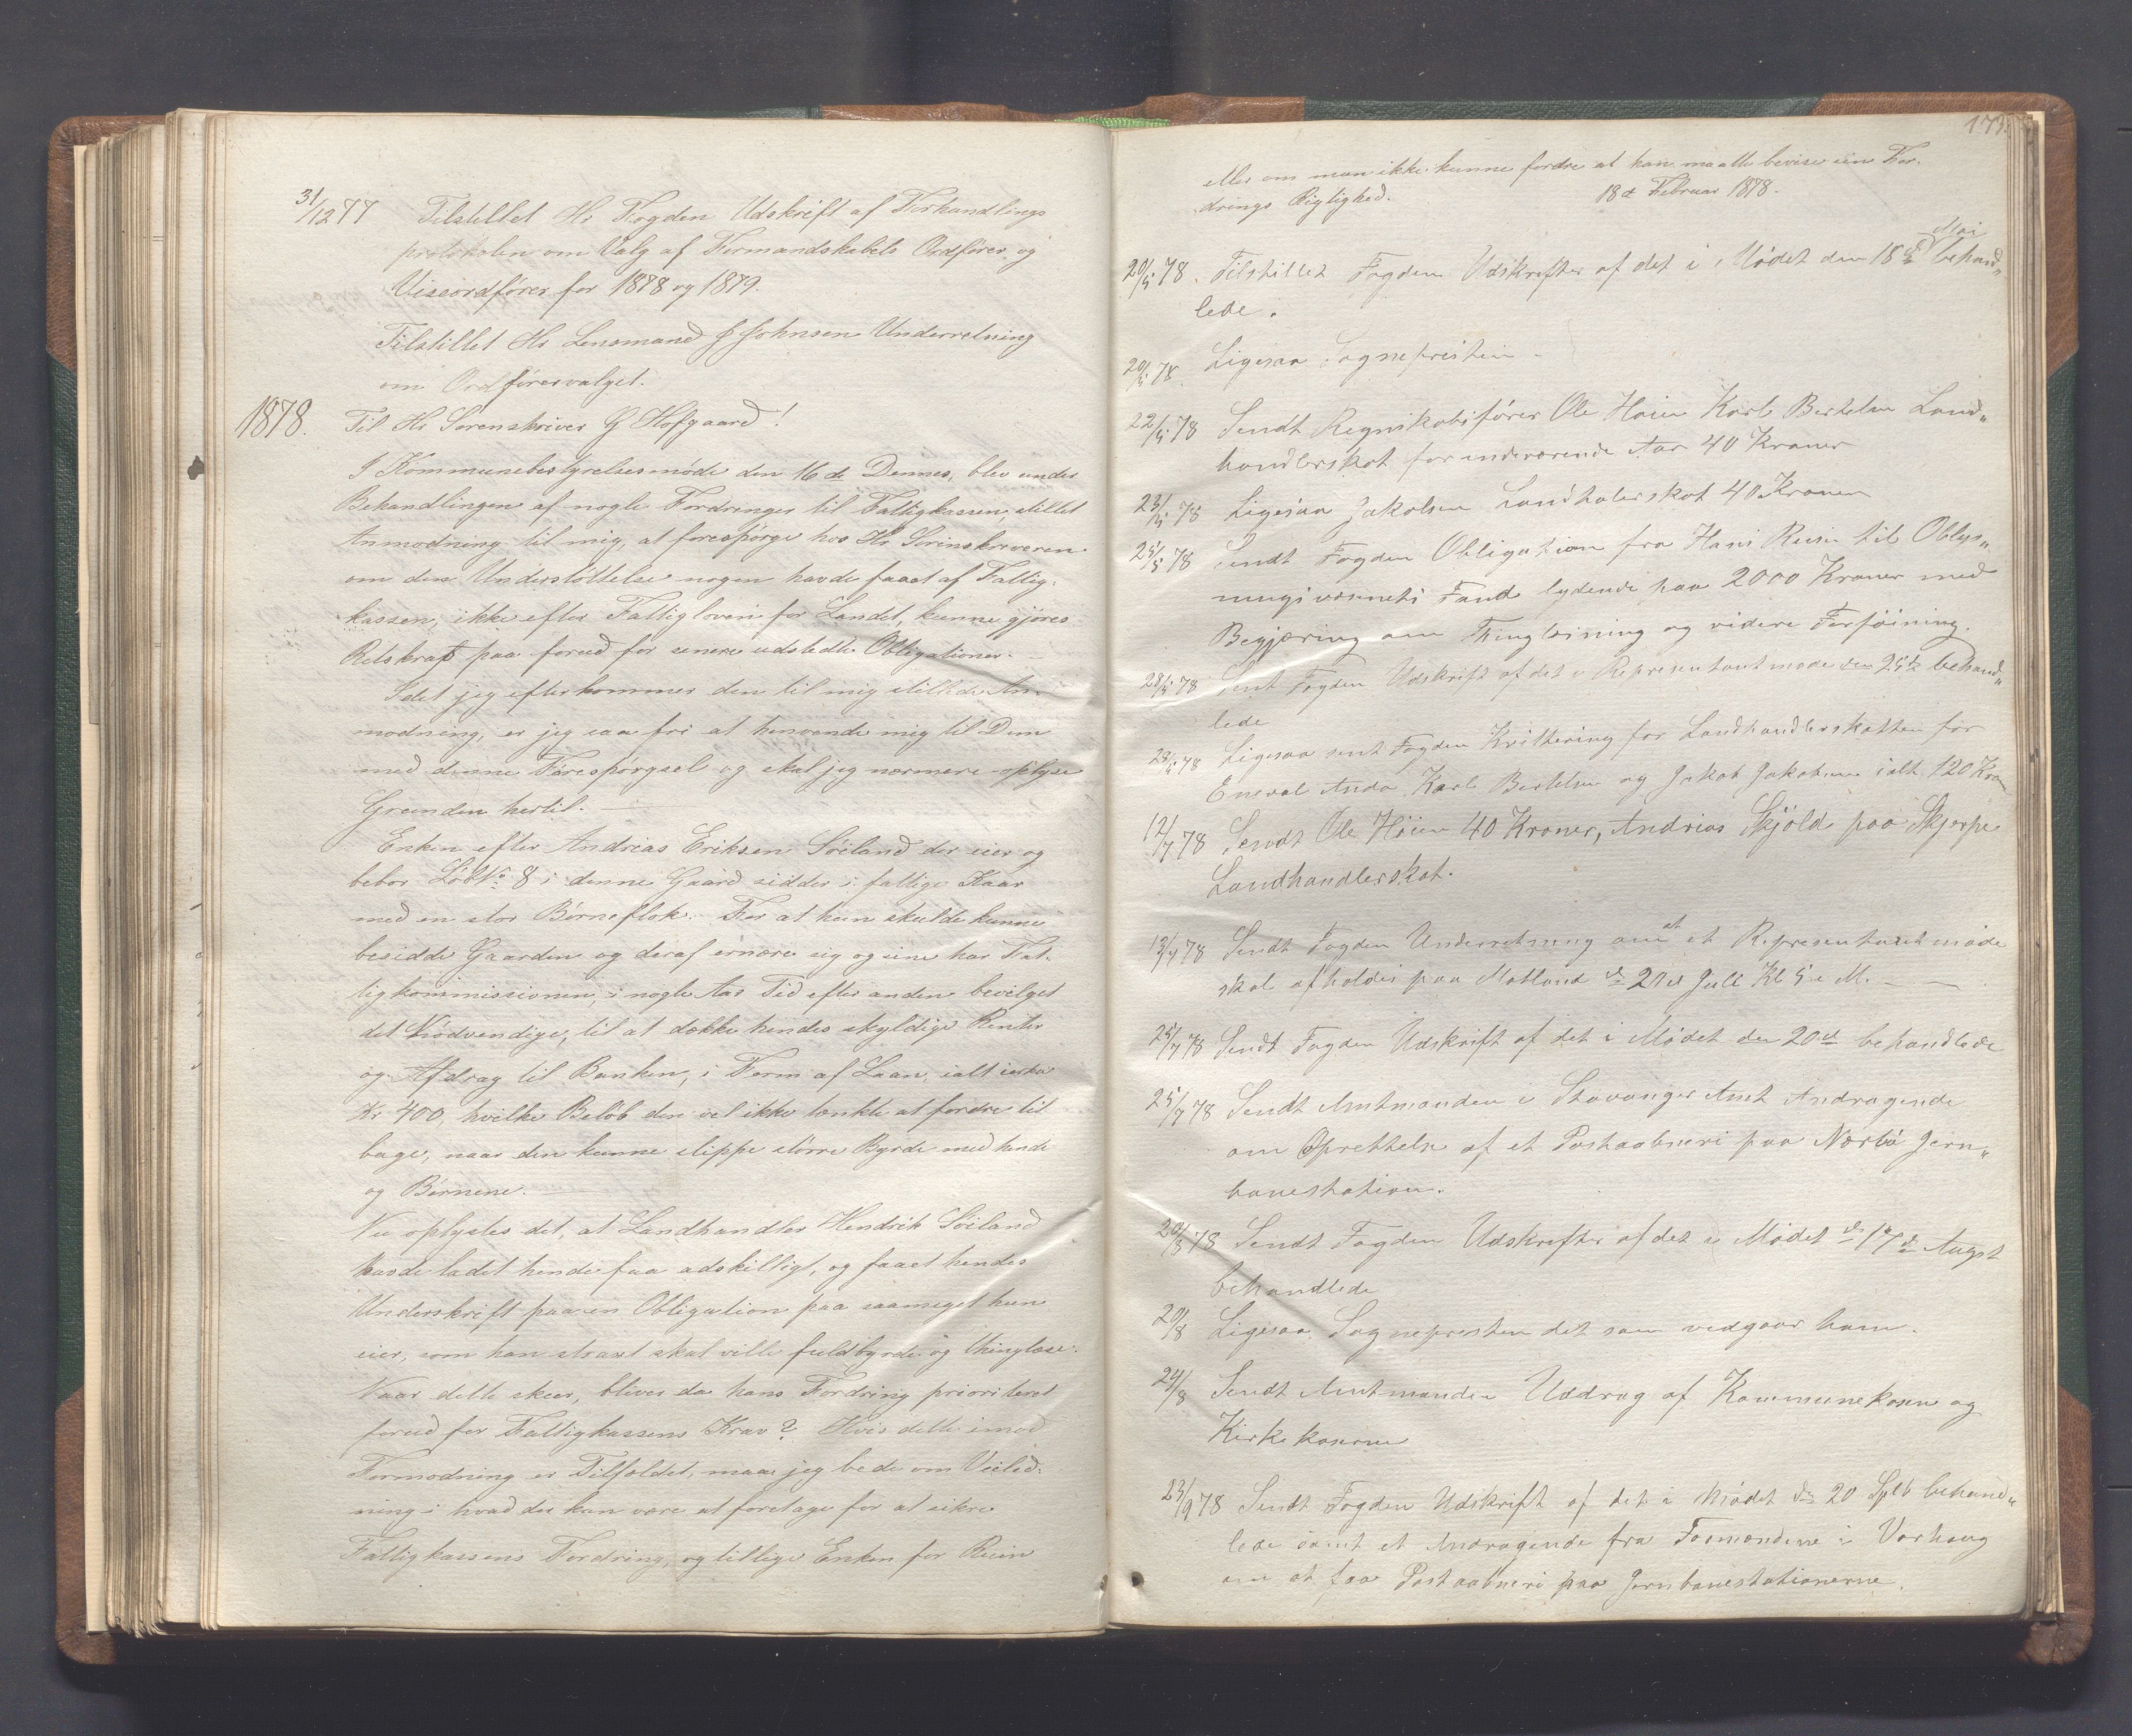 31/12 77 Tilstillet Hr Fogden Udskrift af Forhandlings
protokolen om Valg af Formandskabets Ordfører og
Viseordfører for 1878 og 1879.
Tilstillet Hr Lensmand J Johnsen Underretning
om Ordførervalget.
1878. Til Hr Sorenskriver G Hofgaard!
I Kommunebestyrelsesmøde den 16 de Dennes, blev under
Behandlingen af nogle Fordringer til Fattigkassen, stillet
Anmodning til mig, at forespørge hos Hr Sorinskriveren
om den Understøttelse nogen havde faaet af Fattig-
kassen, ikke efter Fattigloven for Landet, kunne gjøres
Retskraft paa forud for senere udstedte Obligationer. —
Idet jeg efterkommer den til mig stillede An-
modning, er jeg saa fri at henvende mig til Dem
med denne Førespørgsel og skal jeg nærmere oplyse
Grunden hertil. —
Enken efter Andreas Eriksen Søiland der eier og
bebor LøbNo 8 i denne Gaard sidder i fattige Kaar
med en stor Børneflok. For at hun skulde kunne
besidde Gaarden og deraf ernære sig og sine har Fat-
tigkommissionen, i nogle Aar Tid efter anden bevilget
det Nødvendige, til at dække hendes skyldige Renter
og Afdrag til Banken, i Form af Laan, ialt cirka
Kr 400, hvilke Beløb den vel ikke tænkte at fordre til
bage, naar den kunne slippe større Byrde med hende
og Børnene. —
Nu oplystes det, at Landhandler Hendrik Søiland
havde ladet hende faa adskilligt, og faaet hendes
Underskrift paa en Obligation paa saameget hun
eier, som han straxt skal ville fuldbyrde og thinglæse.
Naar dette skeer, bliver da hans Fordring prioriteret
forud for Fattigkassens Krav? Hvis dette imod
Formodning er Tilfældet, maa jeg bede om Veiled-
ning i hvad der kan være at foretage for at sikre
Fattigkassens Fordring, og tillige Enken for Ruin
173.
eller om man ikke kunne fordre at han maatte bevise sin For-
drings Rigtighed. 18de Februar 1878.
20/5 78. Tilstillet Fogden Udskrifter af det i Mødet den 18de Mai behand„
lede.
20/5 78. Ligesaa Sognepresten —
22/5 78 Sendt Regnskabsfører Ole Høien Karl Bertelsen Land„
handlerskat for inderværende Aar 40 Kroner
23/5 78 Ligesaa Jakobsen Landhalerskat 40 Kroner
25/5 78 Sendt Fogden Obligation fra Hans Reien til Oblys„
ningsvæsnets Fond lydende paa 2000 Kroner med
Begjæring om Thinglæsning og videre Forføining.
28/5 78 Sent Fogden Udskrift af det i Representantmøde den 25de behand„
lede
28/5 78 Ligesaa sent Fogden Kvittering for Landhandlerskatten for
Enevald Anda Karl Bertelsen og Jakob Jakobsen ialt 120 Kron
12/7 78 Sendt Ole Höien 40 Kroner, Andrias Skjöld paa Skjerpe
Landhandlerskat.
13/7 78 Sendt Fogden Underretning om at et Representantmøde
skal afholdes paa Motland d. 20d Juli Kl 5 e M. — —
25/7 78 Sendt Fogden Udskrift af det i Mødet den 20de behandlede
25/7 78 Sendt Amtmanden i Stavanger Amt Andragende
om Oprettelse af et Postaabneri paa Nærbø Jern„
banestation.
20/8 78 Sendt Fogden Udskrifter af det i Mødet d. 17de Augst
behandlede
20/8 Ligesaa Sognepresten det som vedgaar ham.
24/8 Sendt Amtmanden Uddrag af Kommunekasen og
Kirkekaserne
23/9 78 Sendt Fogden Udskrift af det i Mødet den 20 Sptb behand„
lede samt et Andragende fra Formændene i Varhaug
om at faa Postaabneri paa Jernbanestationerne.